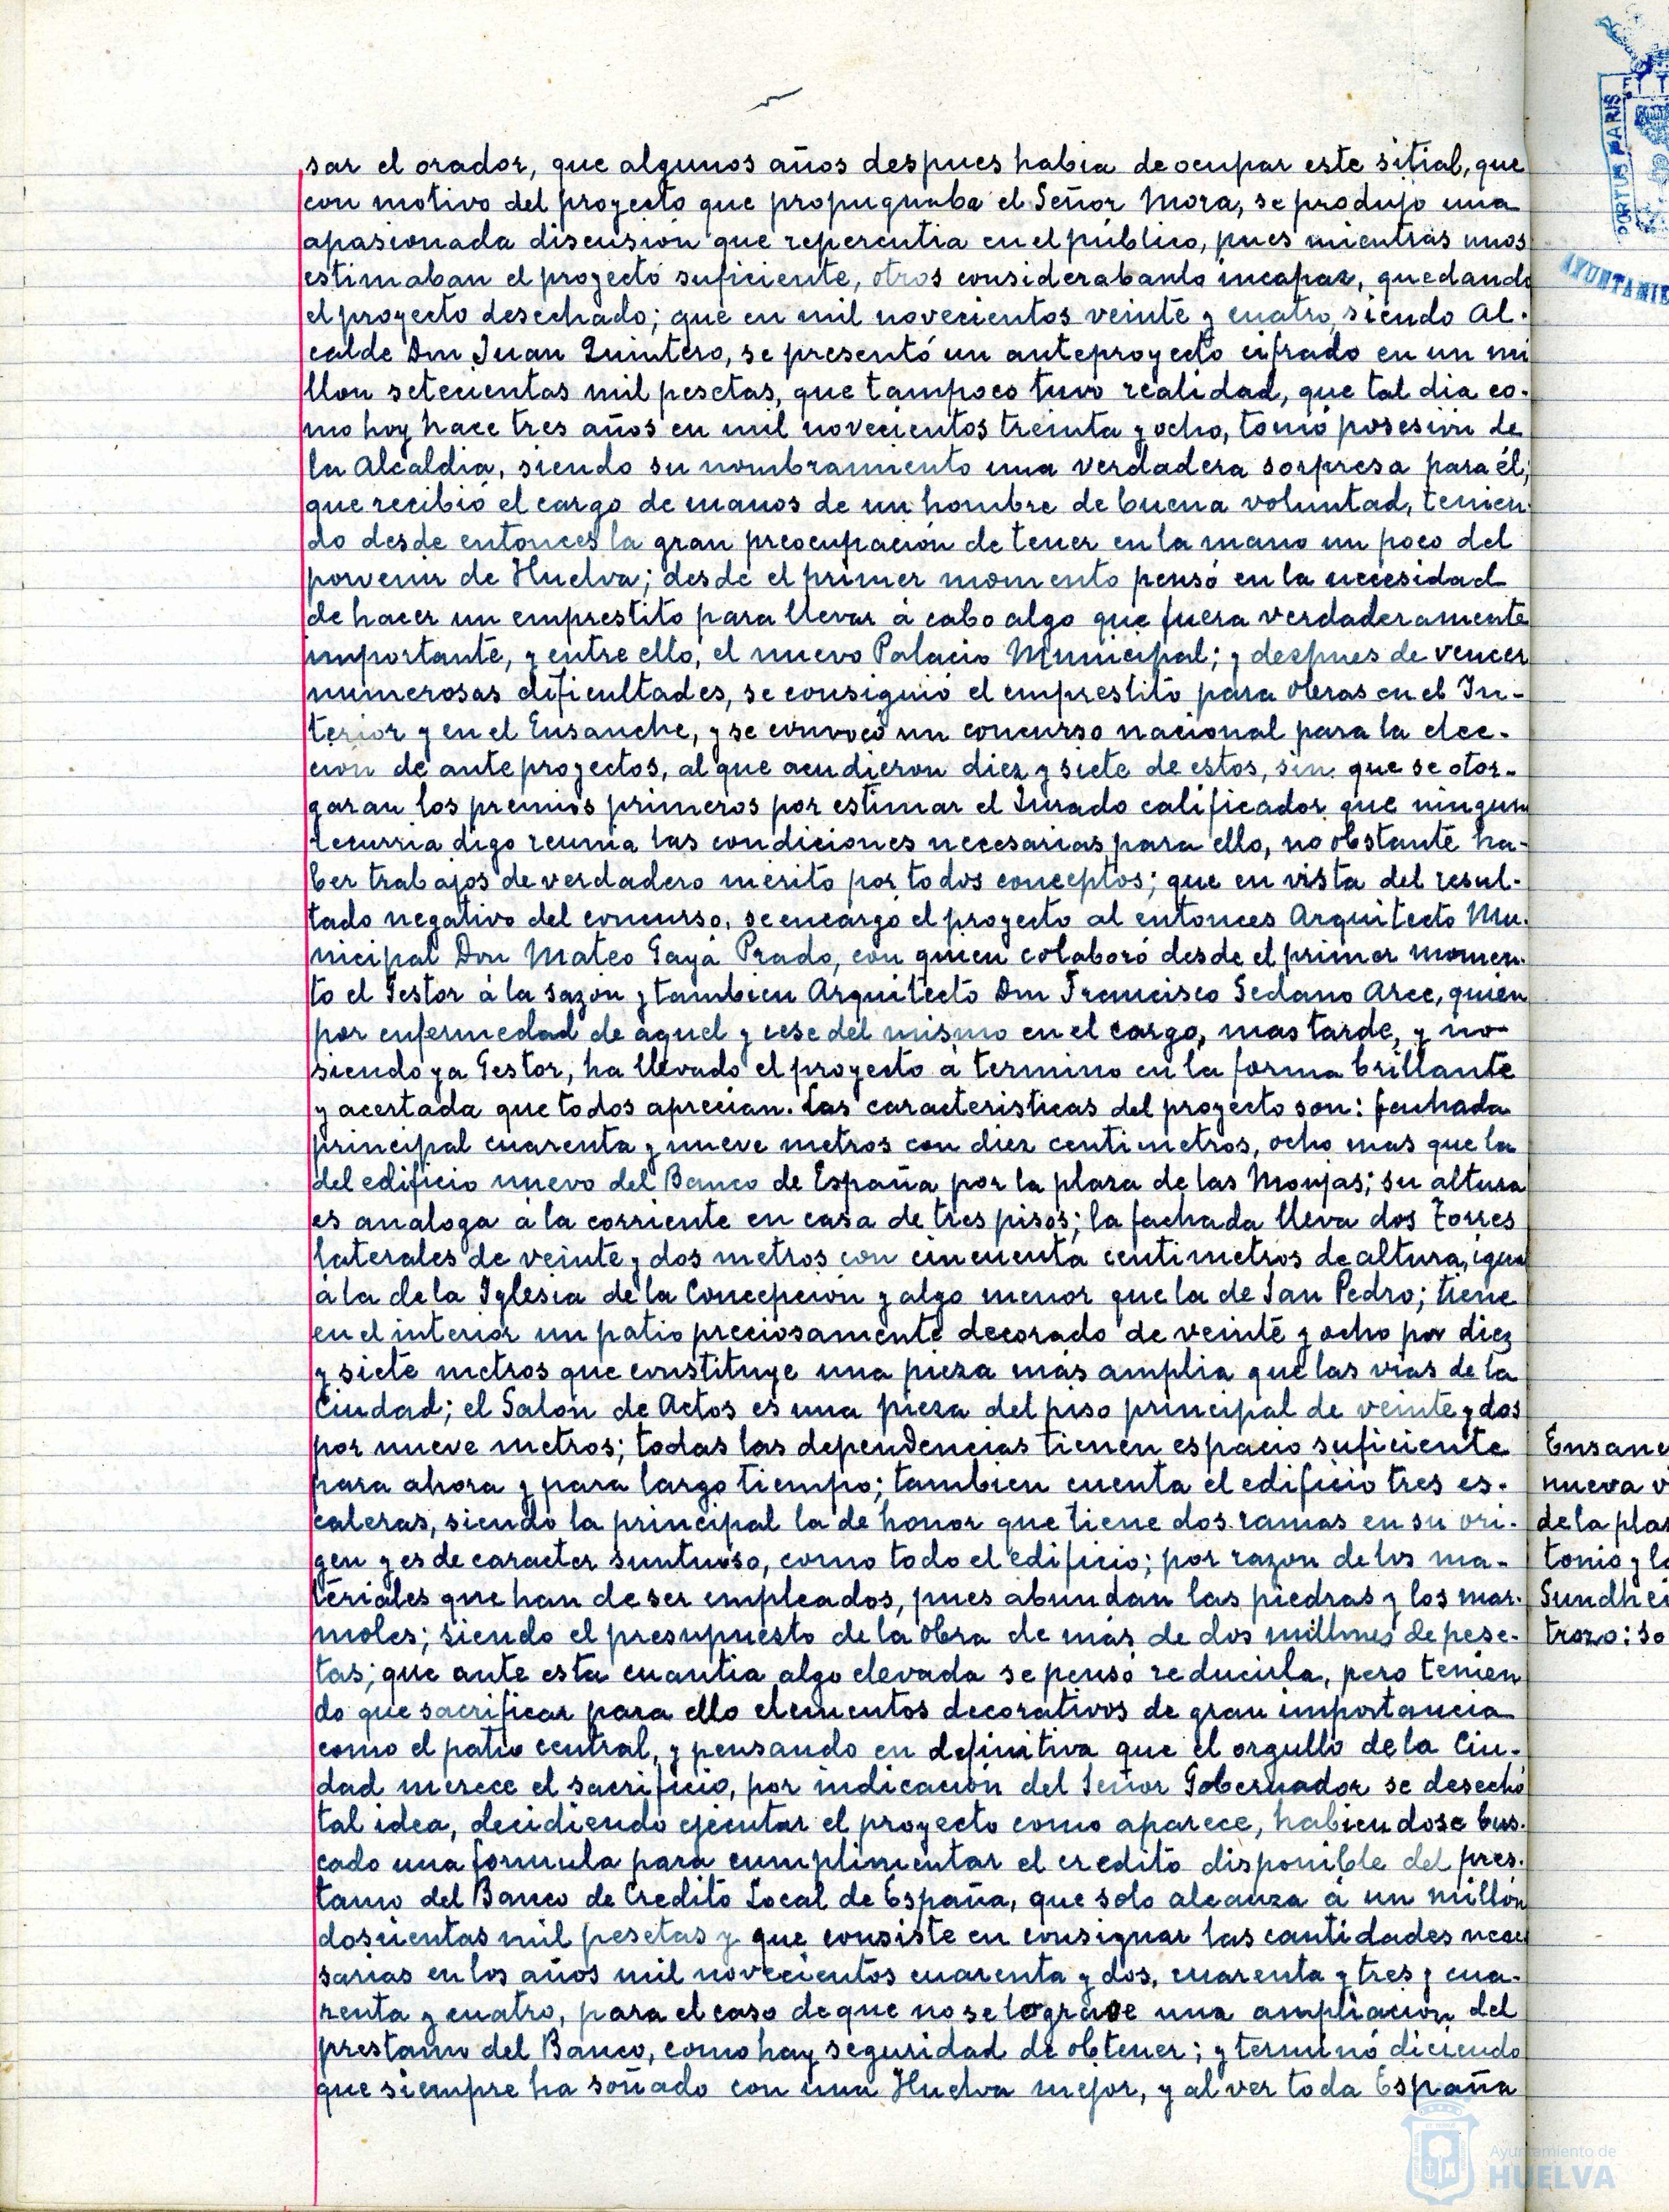 sar el orador, que algunos años despues habia de ocupar este sitial, que
con motivo del proyecto que propugnaba el Señor Mora, se produjo una
apasionada discusión que repercutia en el público, pues mientras unos
estimaban el proyecto suficiente, otros considerabanlo incapaz, quedando
el proyecto desechado; que en mil novecientos veinte y cuatro, siendo Al-
calde Don Juan Quintero, se presentó un anteproyecto cifrado en un mi
llon setecientas mil pesetas, que tampoco tuvo realidad, que tal dia co-
mo hoy hace tres años en mil novecientos treinta y ocho, tomó posesión de
la Alcaldia, siendo su nombramiento una verdadera sorpresa para él;
que recibió el cargo de manos de un hombre de buena voluntad, tenien-
do desde entonces la gran preocupación de tener en la mano un poco del
porvenir de Huelva; desde el primer momento pensó en la necesidad
de hacer un emprestito para llevar á cabo algo que fuera verdaderamente
importante, y entre ello, el nuevo Palacio Municipal; y despues de vencer
numerosas dificultades, se consiguió el emprestito para obras en el In-
terior y en el Ensanche, y se convocó un concurso nacional para la elec-
cion de anteproyectos, al que acudieron diez y siete de estos, sin que se otor-
garan los premios primeros por estimar el Jurado calificador que ninguno
recurria digo reunia las condiciones necesarias para ello, no obstante ha-
ber trabajos de verdadero merito por todos conceptos; que en vista del resul-
tado negativo del concurso, se encargó el proyecto al entonces Arquitecto Mu-
nicipal Don Mateo Gayá Prado, con quien colaboró desde el primer momen-
to el Gestor á la sazon y tambien Arquitecto Don Francisco Sedano Arce, quien
por enfermedad de aquel y cese del mismo en el cargo, mas tarde, y no
siendo ya Gestor, ha llevado el proyecto á termino en la forma brillante
y acertada que todos aprecian. Las caracteristicas del proyecto son: fachada
principal cuarenta y nueve metros con diez centimetros, ocho mas que la
del edificio nuevo del Banco de España por la plaza de las Monjas; su altura
es analoga á la corriente en casa de tres pisos; la fachada lleva dos Torres
laterales de veinte y dos metros con cincuenta centimetros de altura, igual
á la de la Iglesia de la Concepción y algo menor que la de San Pedro; tiene
en el interior un patio preciosamente decorado de veinte y ocho por diez
y siete metros que constituye una pieza más amplia que las vias de la
Ciudad; el Salón de Actos es una pieza del piso principal de veinte y dos
por nueve metros; todas las dependencias tienen espacio suficiente
para ahora y para largo tiempo; tambien cuenta el edificio tres es-
caleras, siendo la principal la de honor que tiene dos ramas en su ori-
gen y es de caracter suntuoso, como todo el edificio; por razon de los ma-
teriales que han de ser empleados, pues abundan las piedras y los mar-
moles; siendo el presupuesto de la obra de más de dos millones de pese-
tas; que ante esta cuantia algo elevada se pensó reducirla, pero tenien
do que sacrificar para ello elementos decorativos de gran importancia
como el patio central, y pensando en definitiva que el orgullo de la Ciu-
dad merece el sacrificio, por indicación del Señor Gobernador se desechó
tal idea, decidiendo ejecutar el proyecto como aparece, habiendose bus-
cado una formula para cumplimentar el credito disponible del pres-
tamo del Banco de Credito Local de España, que solo alcanza á un millón
doscientas mil pesetas y que consiste en consignar las cantidades nece
sarias en los años mil novecientos cuarenta y dos, cuarenta y tres y cua-
renta y cuatro, para el caso de que no se lograse una ampliación del
prestamo del Banco, como hay seguridad de obtener; y terminó diciendo
que siempre ha soñado con una Huelva mejor, y al ver toda España
PORTUS MARIS
AYUNTAMIE
Ensanc
nueva v
de la plaz
tonio y la
Sundhei
trozo: so
Ayuntamiento de
HUELVA